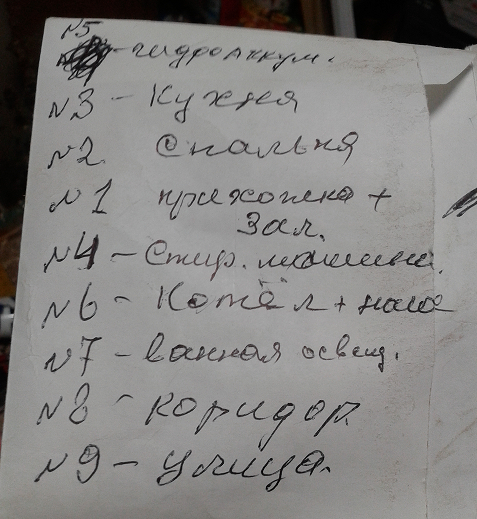 №5
- гидроаккум.
№3 - Кухня
№2 Спальня
№1 прихожка +
Зал.
№4 - Стир. машина.
№6 - Котёл +
№7 - ванная освещ.
№8 - коридор.
№9 - улица.